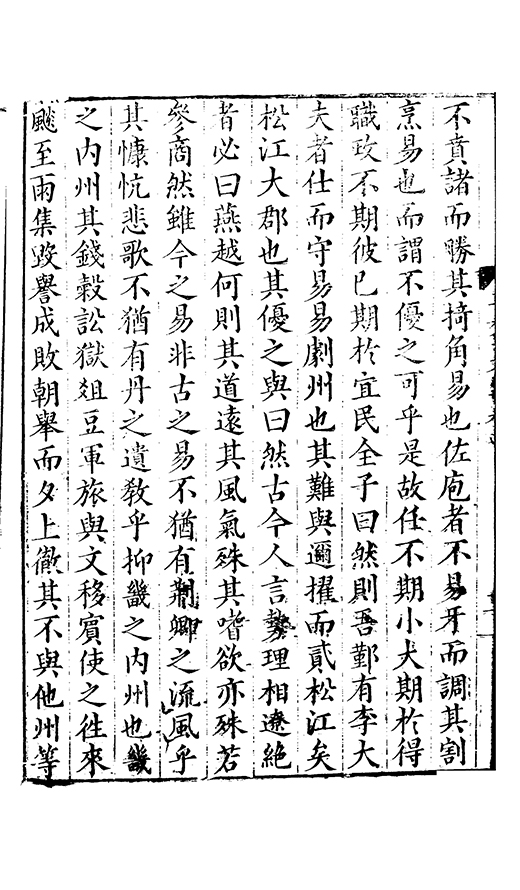 不賁諸而勝其掎角易也佐庖者不易牙而調其割
烹易也而謂不優之可乎是故任不期小大期於得
職政不期彼已期於宜民全子曰然則吾鄞有李大
夫者仕而守易易劇州也其難與邇擢而貳松江矣
松江大郡也其優之與曰然古今人言勢理相遼絶
者必曰燕越何則其道遠其風氣殊其嗜欲亦殊若
參商然雖今之易非古之易不猶有荆卿之流風乎
其慷慨悲歌不猶有丹之遺敎乎抑畿之内州也畿
之内州其錢穀訟獄俎豆軍旅與文移賓使之徃來
飈至雨集毁譽成敗朝舉而夕上徹其不與他州等